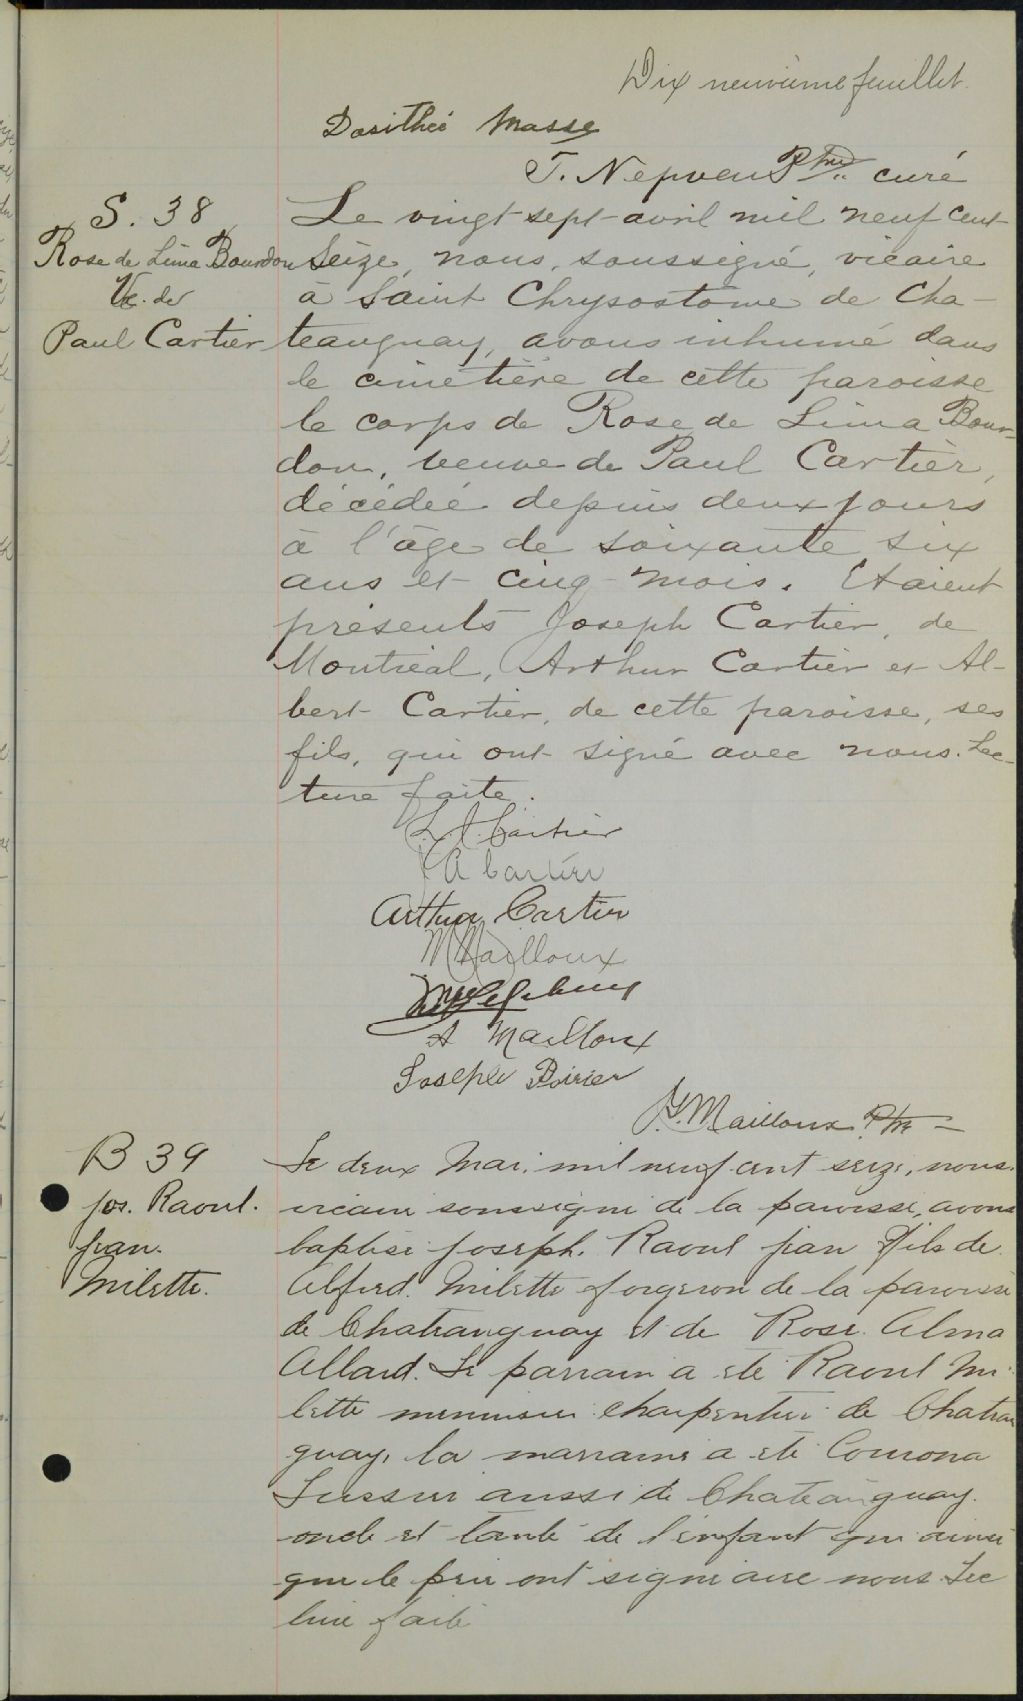 Dix neuvième feuillet.
Dosithée Masse
T. Nepveu Ptre curé
S. 38
Rose de Lima Bourdon
Ve. de
Paul Cartier
Le vingt sept avril mil neuf cent
seize, nous, soussigné, vicaire
à Saint Chrysostôme de Cha-
teauguay, avons inhumé dans
le cimetière de cette paroisse
le corps de Rose de Lima Bour-
don, veuve de Paul Cartier,
décédée depuis deux jours
à l'âge de soixante six
ans et cinq mois. Etaient
présents Joseph Cartier, de
Montréal, Arthur Cartier et Al-
bert Cartier, de cette paroisse, ses
fils, qui ont signé avec nous. Lec-
ture faite.
L. J. Cartier
A Cartier
Arthur Cartier
M Mailloux
Lefebvre
A Mailloux
Joseph Poirier
Mailloux Ptre
B 39
Jos. Raoul.
Jean.
Milette.
Le deux Mai. mil neuf cent seize, nous.
vicaire soussigné de la paroisse, avons
baptisé Joseph. Raoul Jean fils de
Alfred. Milette forgeron de la paroisse
de Chateauguay et de Rose. Alma
Allard. Le parrain a été Raoul Mi
lette menuisier charpentier de Chateau
guay, la marraine a été Corona
aussi de Chateauguay.
oncle et tante de l'enfant qui ainsi
que le père ont signé avec nous. Lec
ture faite